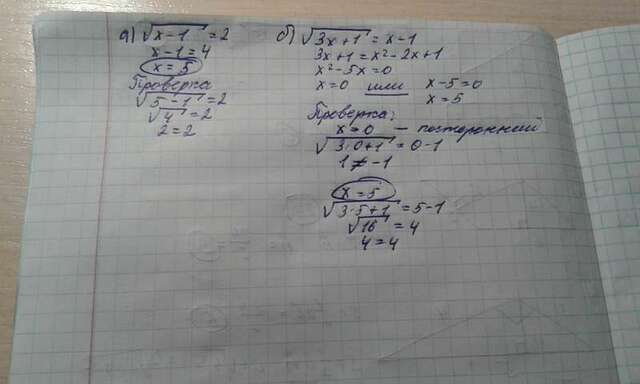 а) √(x-1) = 2
x-1=4
x=5
Проверка
√(5-1) = 2
√4 = 2
2=2
б) √(3x+1) = x-1
3x+1=x²-2x+1
x²-5x=0
x=0 или x-5=0
x=5
Проверка:
x=0 — посторонний
√(3·0+1) = 0-1
1≠-1
x=5
√(3·5+1) = 5-1
√16 = 4
4=4